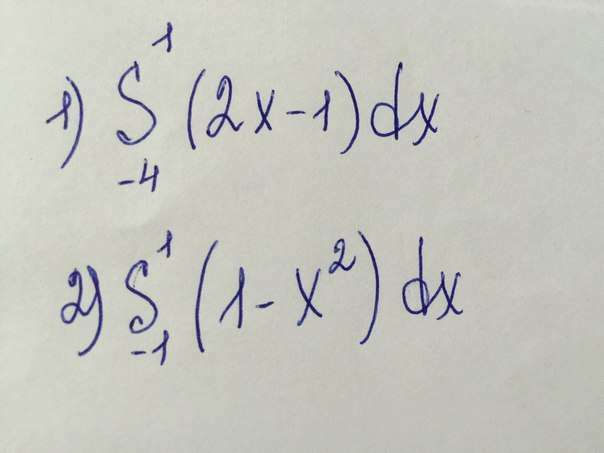 1) ∫₋₄¹ (2x-1) dx
2) ∫₋₁¹ (1-x²) dx